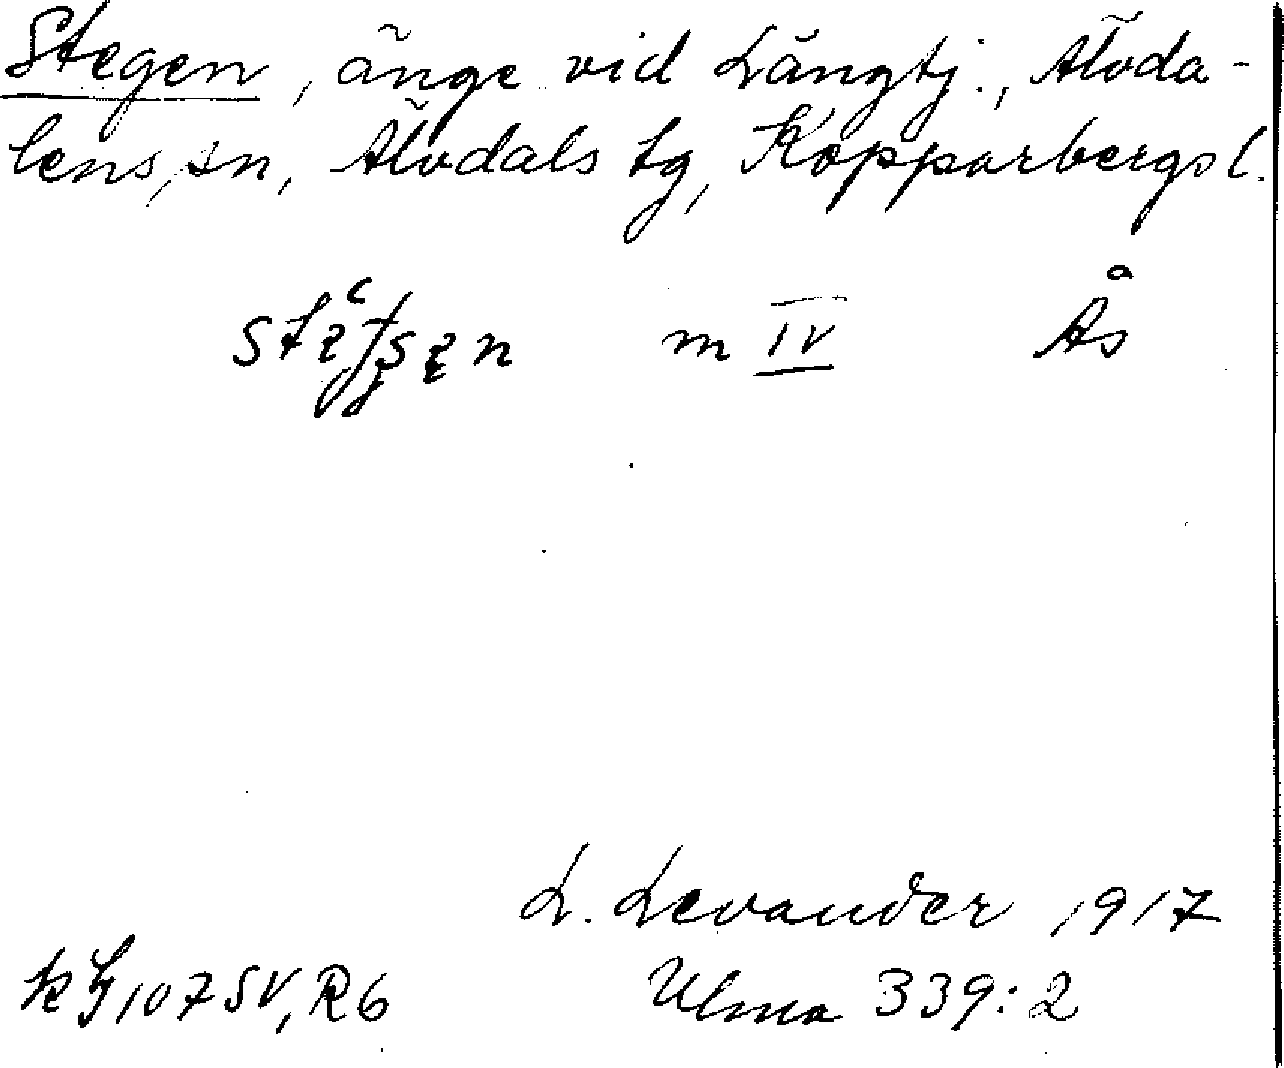 Stegen, änge vid Långtj., Älvda-
lens sn, Älvdals tg, Kopparbergs l.
m IV Ås
L. Levander 1917
Ulma 339:2